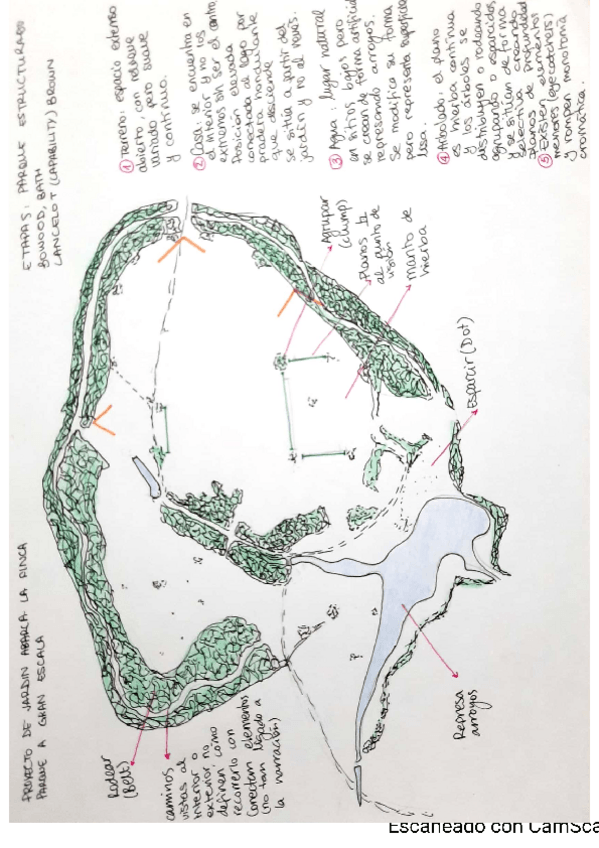 ETAPAS: PARQUE ESTRUCTURADO
BOWOOD, BATH
LANCELOT (CAPABILITY) BROWN
PROYECTO DE JARDIN ABARCA LA FINCA
PARQUE A GRAN ESCALA
① Terreno: espacio extenso
abierto, con relieve
variado pero suave
y continuo.
② Casa: se encuentra en
el interior y no los
extremos sin ser el centro
Posición elevada
conectada al lago por
pradera hondulante
que desciende
se sitúa a partir del
jardín y no al revés.
③ Agua: lugar natural
en sitios bajos pero
se crean de forma artificial
represando arroyos.
Se modifica su forma
pero representa superficie
lisa.
④ Arbolado: el plano
es hierba continua
y los árboles se
distribuyen o rodeando
agrupando o esparcidos
y se sitúan de forma
selectiva creando
planos de profundidad
⑤ Existen elementos
menores (eyecatchers)
y rompen monotonía
cromática.
Agrupar
(clump)
Planos
al punto de
visión
manto de
hierba
Esparcir (Dot)
Represa
arroyos
Rodear
(Belt)
caminos
vistas al
interior o
exterior no
definen como
recorrerlo con
conectan elementos
(no tan ligado a
la narración)
Escaneado con CamSca